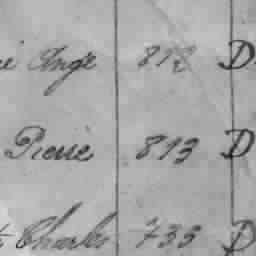 Ange 812 D
Pierre 813 D
Charles 733 D